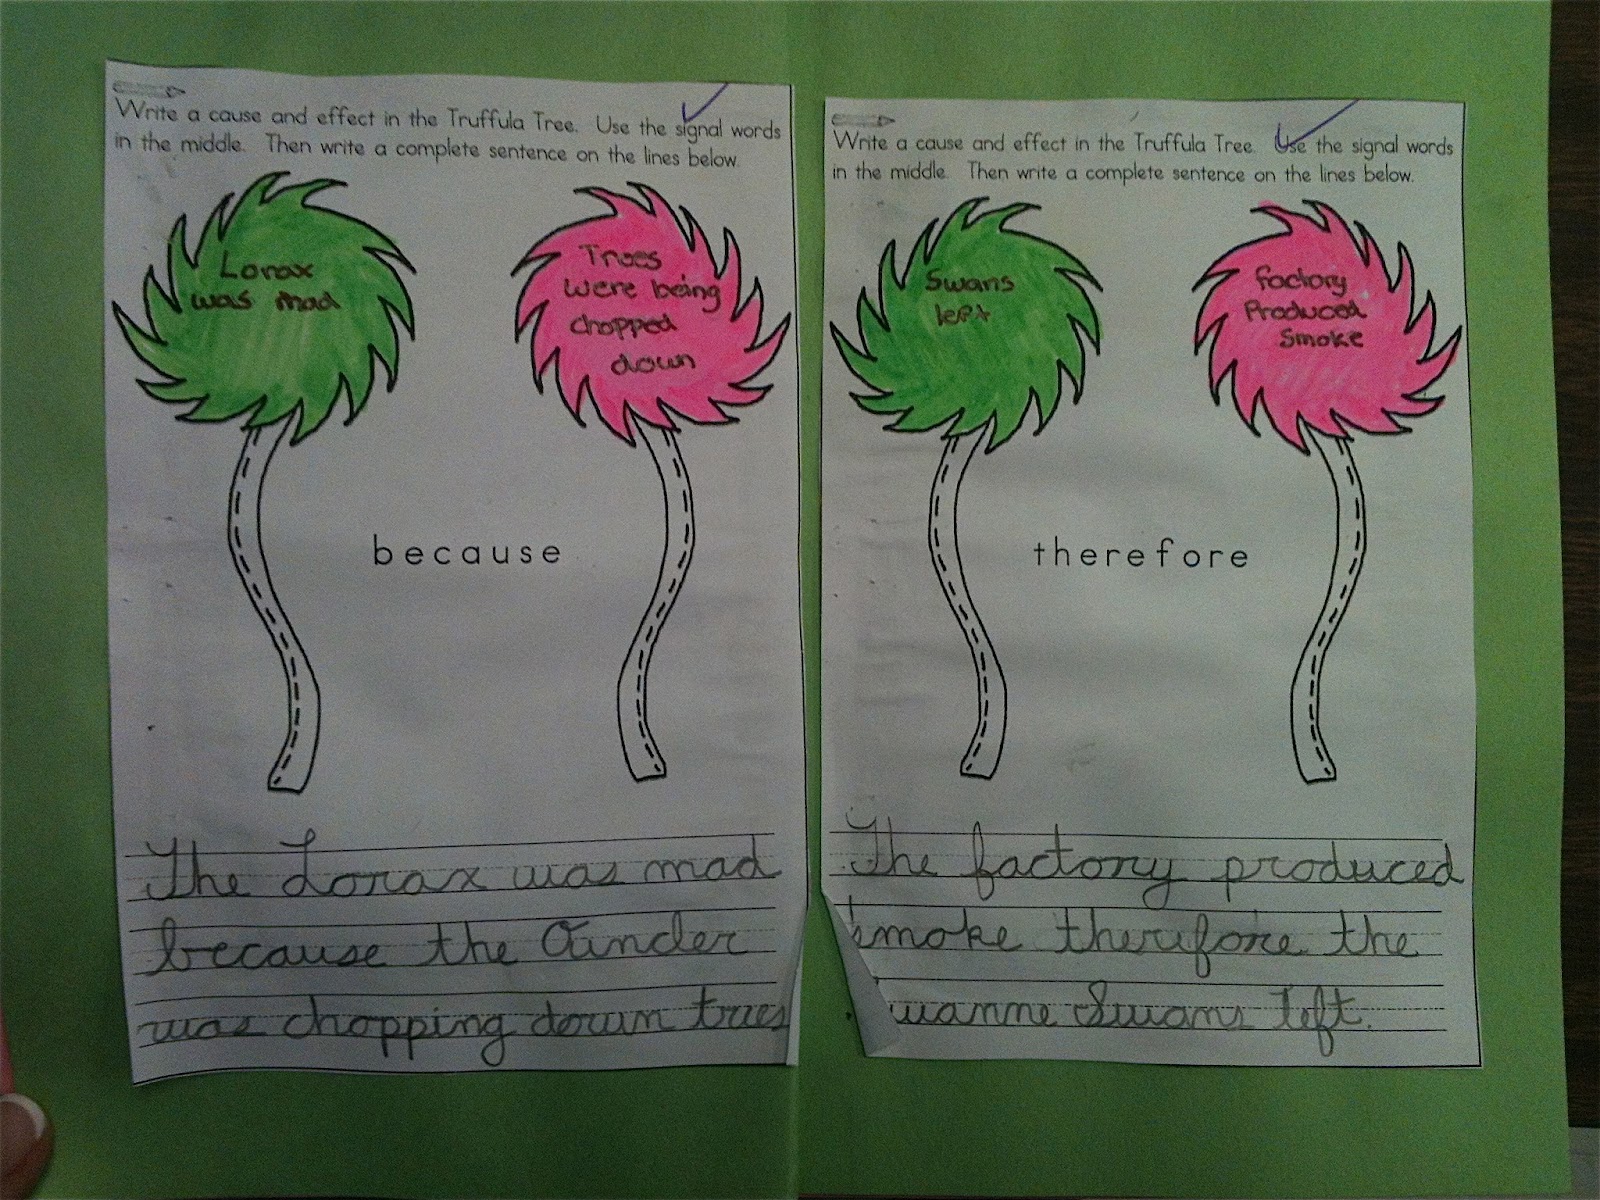 Write a cause and effect in the Truffula Tree. Use the signal words
in the middle. Then write a complete sentence on the lines below.
Lorax
was mad
Trees
were being
chopped
down
because
The Lorax was mad
because the
was chopping down trees
Write a cause and effect in the Truffula Tree. Use the signal words
in the middle. Then write a complete sentence on the lines below.
Swans
left
factory
Produced
Smoke
therefore
The factory produced
smoke therefore the
Swans left.